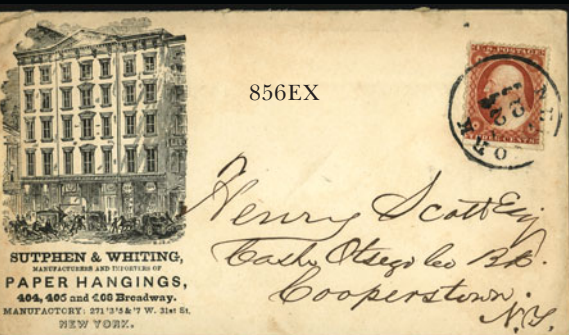 856EX
U.S. POSTAGE
NEW YORK
SUTPHEN & WHITING,
MANUFACTURERS AND IMPORTERS OF
PAPER HANGINGS,
404, 406 and 408 Broadway.
MANUFACTORY: 271 '3 '5 & '7 W. 31st St.
NEW YORK.
Henry Scott Esq
Cash. Otsego Co Bk.
Cooperstown.
N.Y.